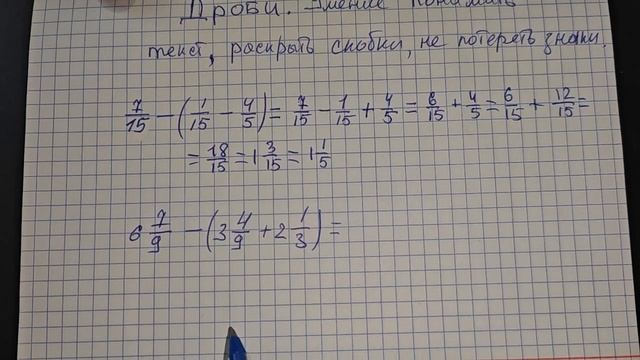 Дроби. Умение понимать
текст, раскрыть скобки, не потерять знаки.
7/15 − (1/15 − 4/5) = 7/15 − 1/15 + 4/5 = 6/15 + 4/5 = 6/15 + 12/15 =
= 18/15 = 1 3/15 = 1 1/5
6 7/9 − (3 4/9 + 2 1/3) =